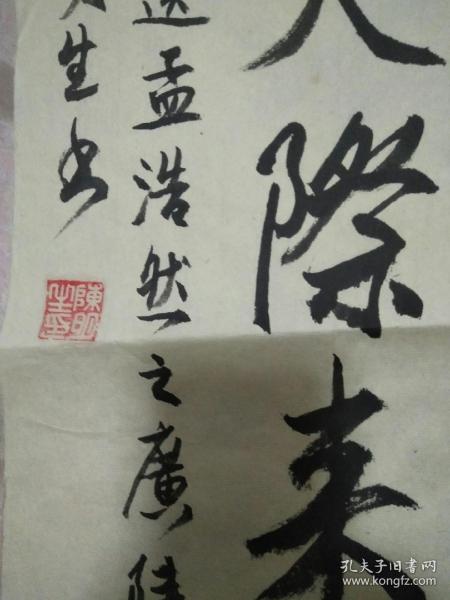 際来
孟浩然之廣陵
生书
陳明
生印
孔夫子旧书网
www.kongfz.com